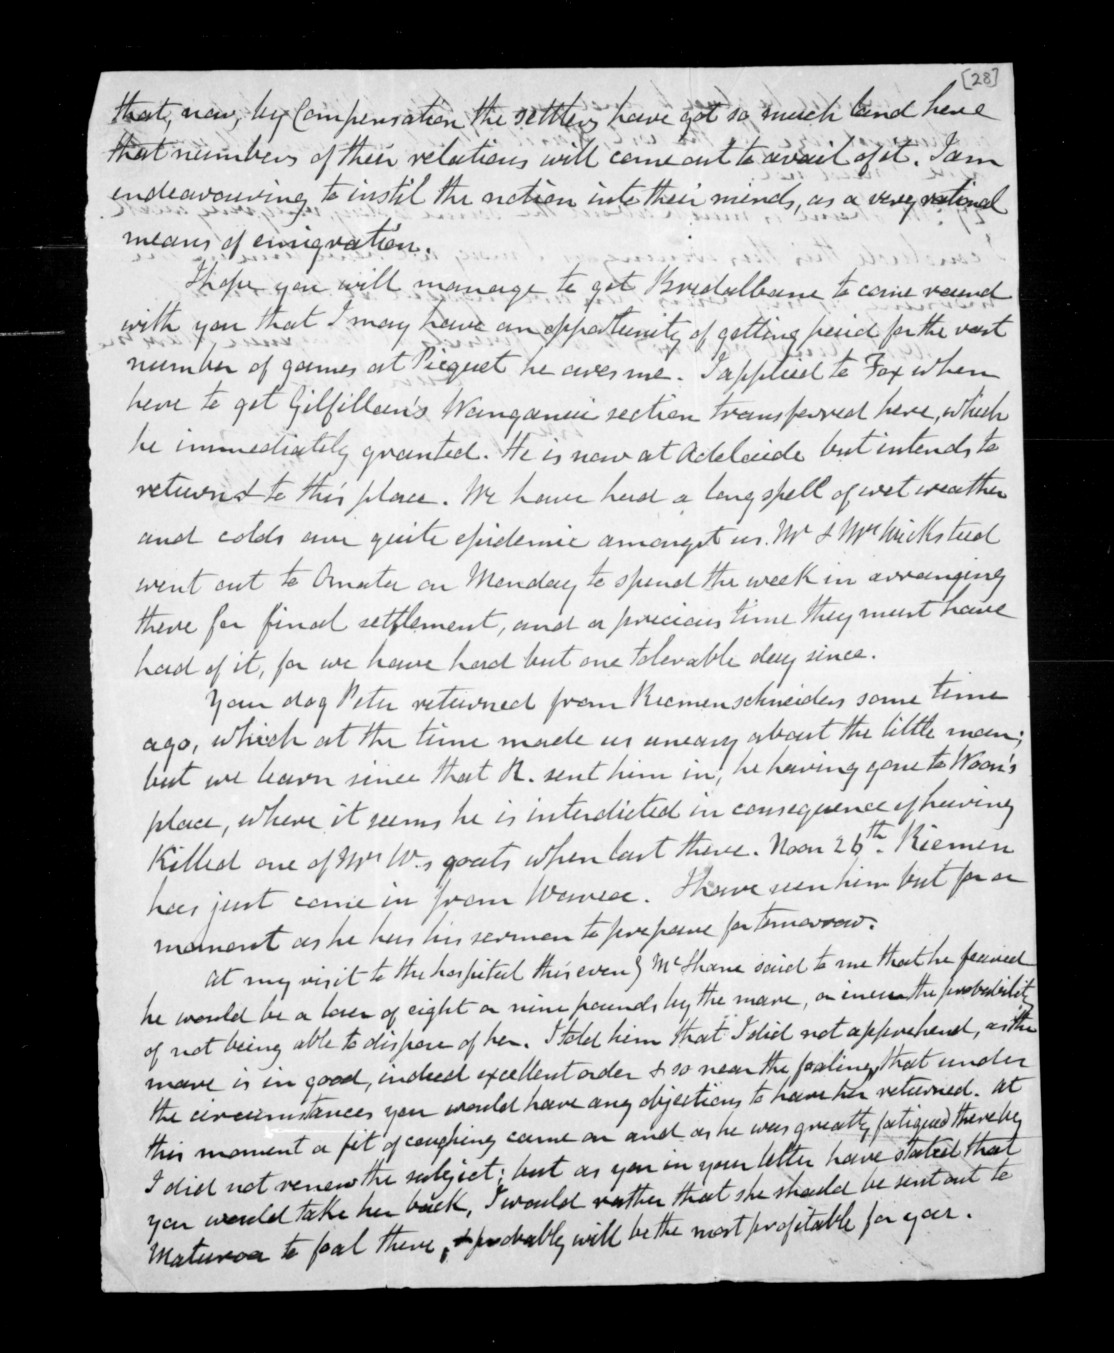 [28]
that, now, by Compensation the settlers have got so much land here
that numbers of their relations will come out to avail of it. I am
endeavouring to instil the notion into their minds, as a very rational
means of emigration.
I hope you will manage to get Bredalbane to come round
with you that I may have an opportunity of getting paid for the vast
number of games at Picquet he owes me. I applied to Fox when
here to get Gilfillan's Wanganui section transferred here, which
he immediately granted. He is now at Adelaide but intends to
return to this place. We have had a long spell of wet weather
and colds are quite epidemic amongst us. Mr & Mrs Wicksteed
went out to Omata on Monday to spend the week in arranging
there for final settlement, and a precious time they must have
had of it, for we have had but one tolerable day since.
Your dog Peter returned from Riemenschneiders some time
ago, which at the time made us uneasy about the little man;
but we learn since that R. sent him in, he having gone to Woon's
place, where it seems he is interdicted in consequence of having
killed one of Mrs W.s goats when last there. Noon 26th. Riemen
has just come in from Warea. I have seen him but for a
moment as he has his sermon to prepare for tomorrow.
At my visit to the hospital this eveng McShane said to me that he feared
he would be a loser of eight or nine pounds by the mare, or incur the probability
of not being able to dispose of her. I told him that I did not apprehend, as the
mare is in good, indeed excellent order & so near the foaling, that under
the circumstances you would have any objections to have her returned. At
this moment a fit of coughing came on and as he was greatly fatigued thereby
I did not renew the subject; but as you in your letter have stated that
you would take her back, I would rather that she should be sent out to
Maturoa to foal there, & probably will be the most profitable for you.